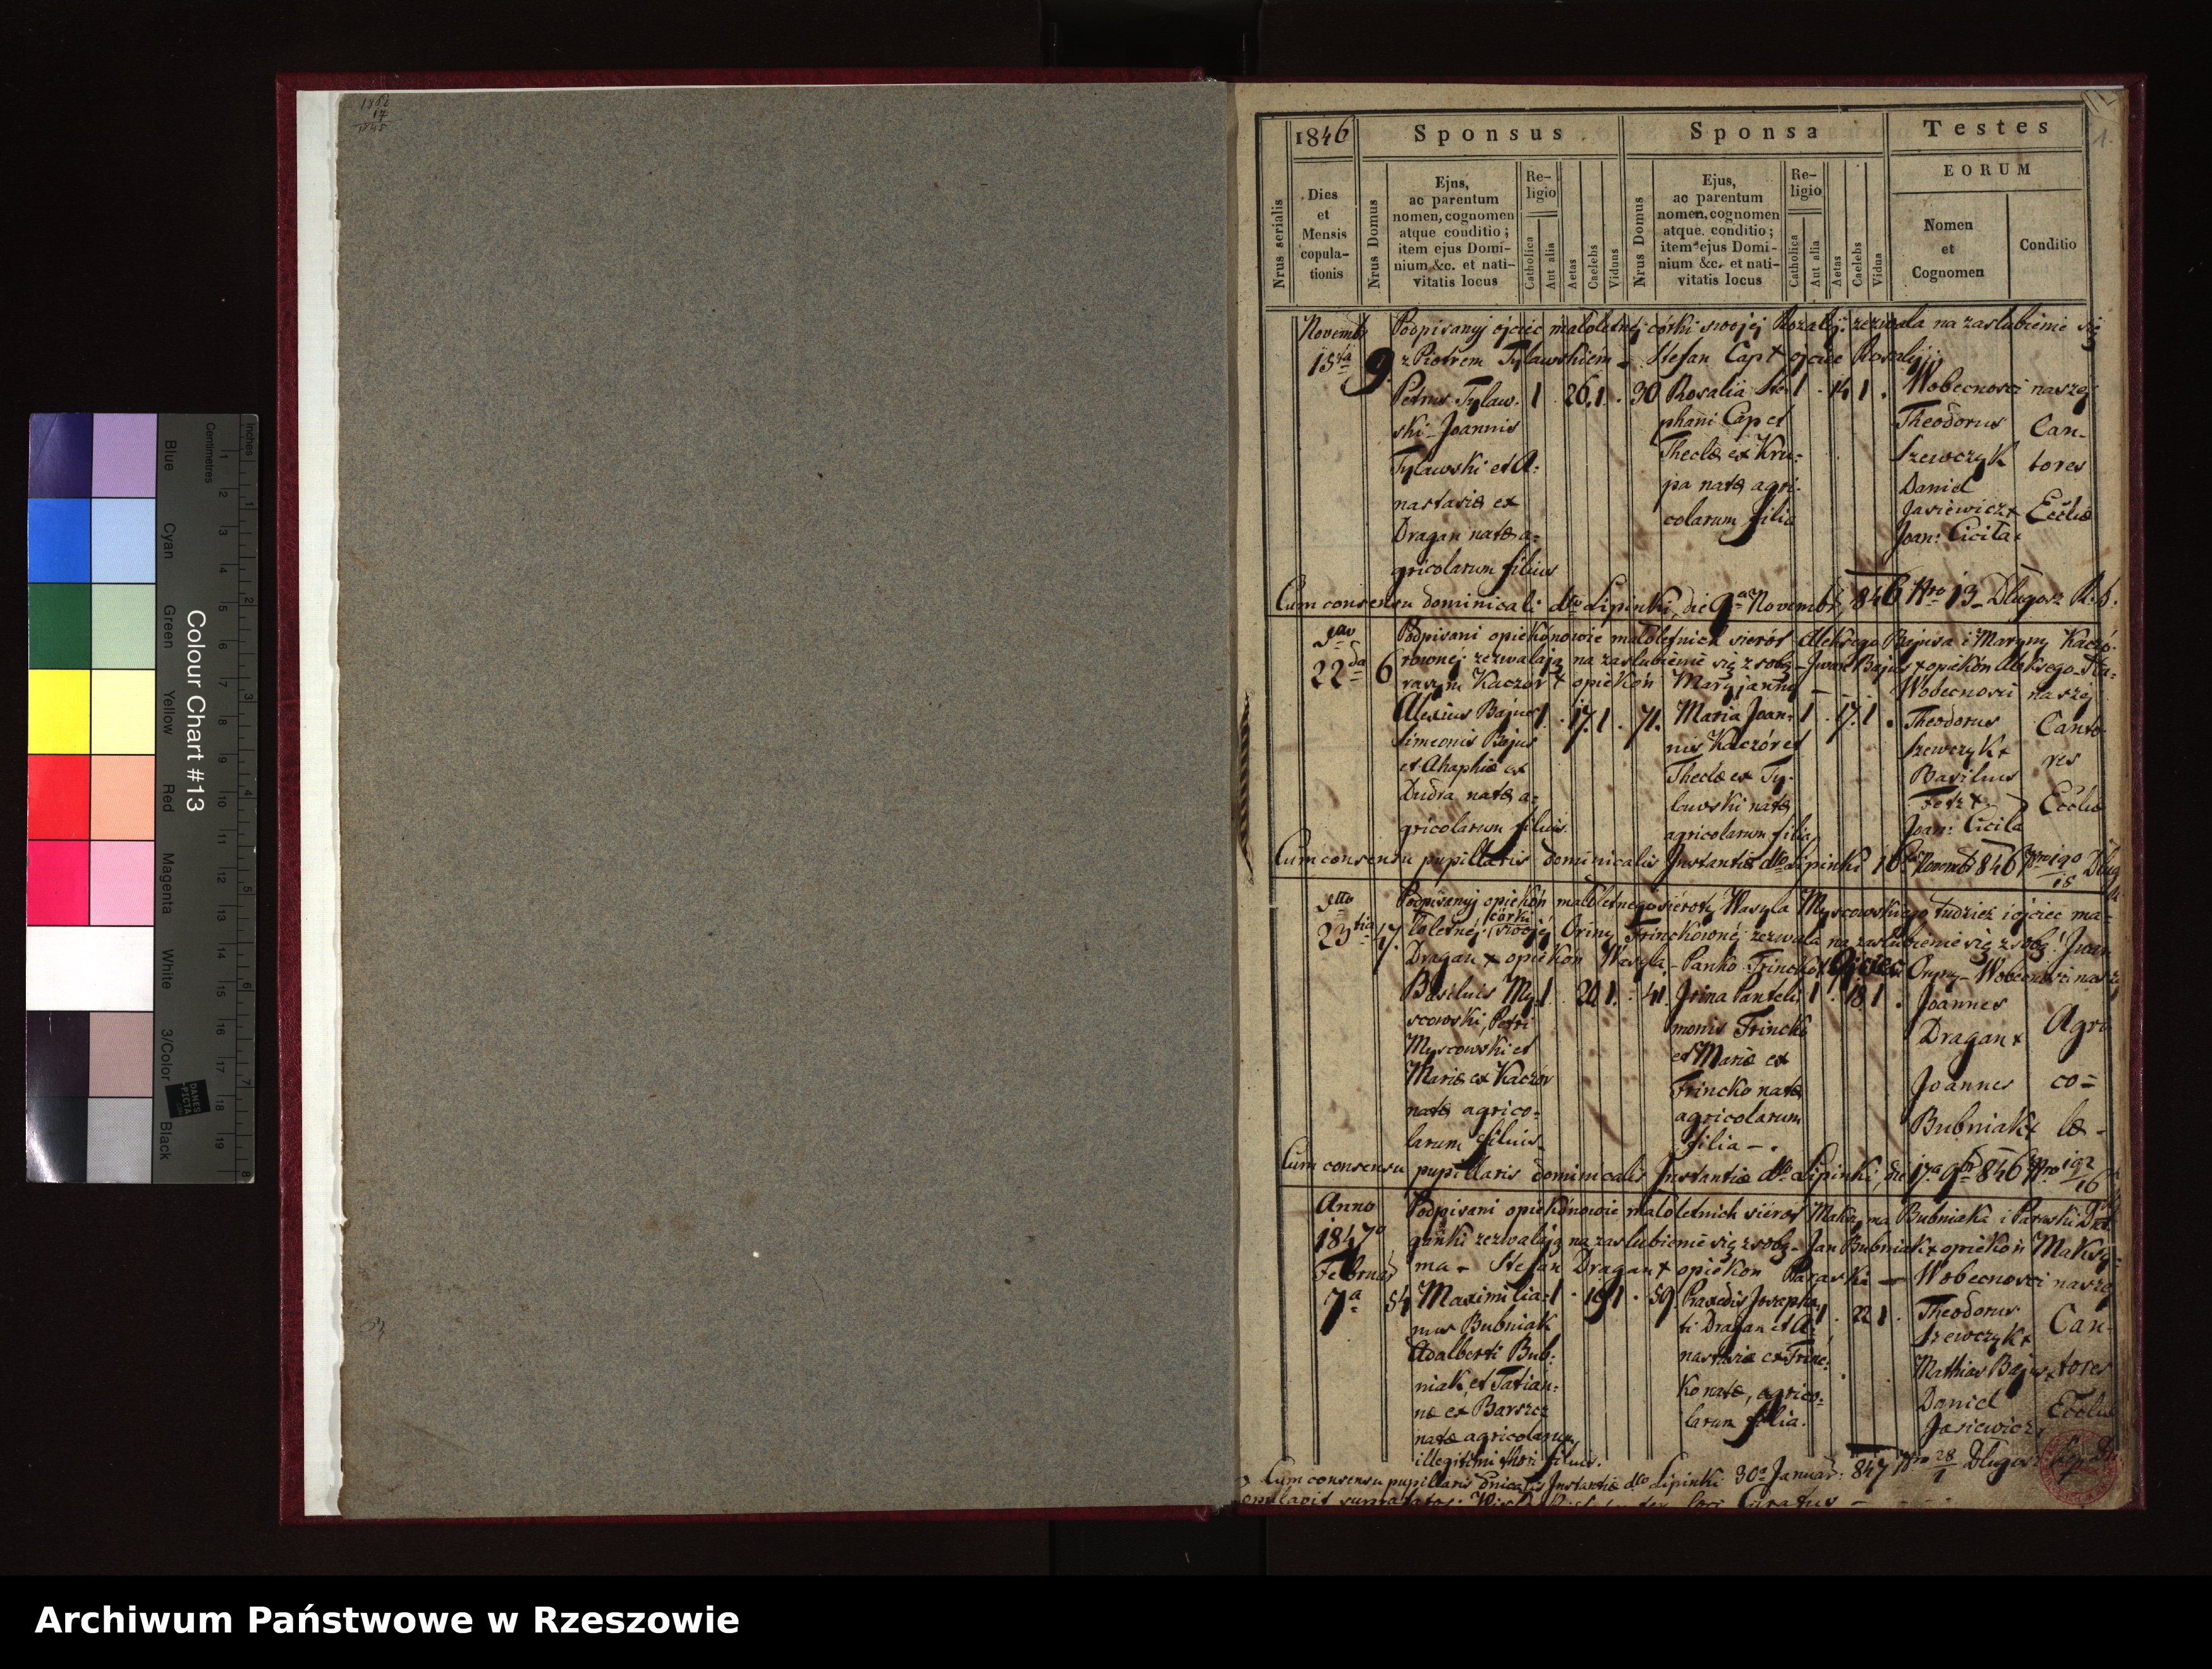 1862
17
1845
Inches
Centimetres
Colour Chart #13
Blue
Cyan
Green
Yellow
Red
Magenta
White
3/Color
Black
DANES
PICTA
1.
1846
Sponsus
Sponsa
Testes
EORUM
Nrus serialis
Dies
et
Mensis
copula-
tionis
Nrus Domus
Ejus,
ac parentum
nomen, cognomen
atque conditio;
item ejus Domi-
nium &c. et nati-
vitatis locus
Re-
ligio
Catholica
Aut alia
Aetas
Caelebs
Viduus
Nrus Domus
Ejus,
ac parentum
nomen, cognomen
atque conditio;
item ejus Domi-
nium &c. et nati-
vitatis locus
Re-
ligio
Catholica
Aut alia
Aetas
Caelebs
Vidua
Nomen
et
Cognomen
Conditio
Novembr Podpisanyj ojciec maloletnéj córki swojej Rozalyi: zezwala na zaslubienie się
15ta 9 z Piotrem Tylawskiem - Stefan Cap + ojciec Rosalyji:
Petrus Tylaw-
ski Joannis
Tylawski et A:
nastasiæ ex
Dragan natæ a=
gricolarum filius
1 . 26. 1 . 30
Rosalia Ste-
phani Cap et
Theclæ ex Kru:
pa natæ agri:
colarum filia
1 . 14 1 .
Wobecnosci naszej
Theodorus
Szewczyk
Daniel
Jasiewicz+
Joan: Cicila+
Can-
tores
Eccliæ
Cum consensu dominicali dto Lipinki, die 9ae Novembr, 846 Nro 13 - Dlugosz
22da 6
Podpisani opiekónowie maloletnich sierót Aleksego Bajusa i Maryny Kaczó-
rownéj: zezwalają na zaslubienie się z sobą - Iwan Bajus + opiekón Aleksego - Ha-
rasym Kaczor + opiekón Maryjanny - Wobecnosci naszéj
Alexius Bajus
Simeonis Bajus
et Ahaphiæ ex
Dudra natæ a=
gricolarum filius.
1 . 17. 1 . 71.
Maria Joan-
nis Kaczór et
Theclæ ex Ty-
lawski natæ
agricolarum filia
1 . 17. 1 .
Theodorus
Szewczyk+
Basilius
Fetz+
Joan: Cicila
Canto
res
Eccliæ
Cum consensu pupillaris dominicalis Instantiæ dto Lipinki 16 Novembr 846
23tia 17.
Podpisanyj opiekón maloletnego sieroty Wasyla Myscowskiego tudziez i ojciec ma-
loletnéj: córki swojéj Oriny Frinckównéj zezwala na zaslubienie się z sobą: Iwan
Dragan + opiekón Wasyla - Panko Frincko + Ojciec Oryny - Wobecnosci nasz
Basilius My-
scowski, Petri
Myscowski et
Mariæ ex Kaczór
natæ agrico-
larum filius
1 . 20 1. . 41.
Irina Panteli
monis Frincko
et Mariæ ex
Frincko natæ
agricolarum
filia - .
1 . 18. 1 .
Joannes
Dragan+
Joannes
Bubniak+
Agri
co=
læ -
Cum consensu pupillaris dominicalis Instantiæ dto Lipinki, die 17a 9br 846 Nro 192/16
Anno
1847o
Februar
7a 54
Podpisani opiekónowie maloletnich sierot Maksyma Bubniaka i Paraski Dra
gunki zezwalają na zaslubienie się z sobą - Jan Bubniak + opiekón Maksy:
ma - Stefan Dragan + opiekón Paraski - Wobecnosci naszé
Maximilia:
nus Bubniak
Adalberti Bub:
niak, et Tatian:
næ ex Barszcz
natæ agricolarum,
illegitimi thori filius.
1 . 19 1 . 59.
Praxedis Josapha
ti Dragan et A:
nastasiæ ex Frinc:
ko natæ, agrico:
larum filia.
1 . 22 1 .
Theodorus
Szewczyk+
Mathias Bajus+
Daniel
Jasiewicz,
Can-
tores
Eccliæ
Cum consensu pupillaris dnicalis Instantiæ dto Lipinki 30a Januar: 847 Nro 28/1 Dlugosz
Archiwum Państwowe w Rzeszowie